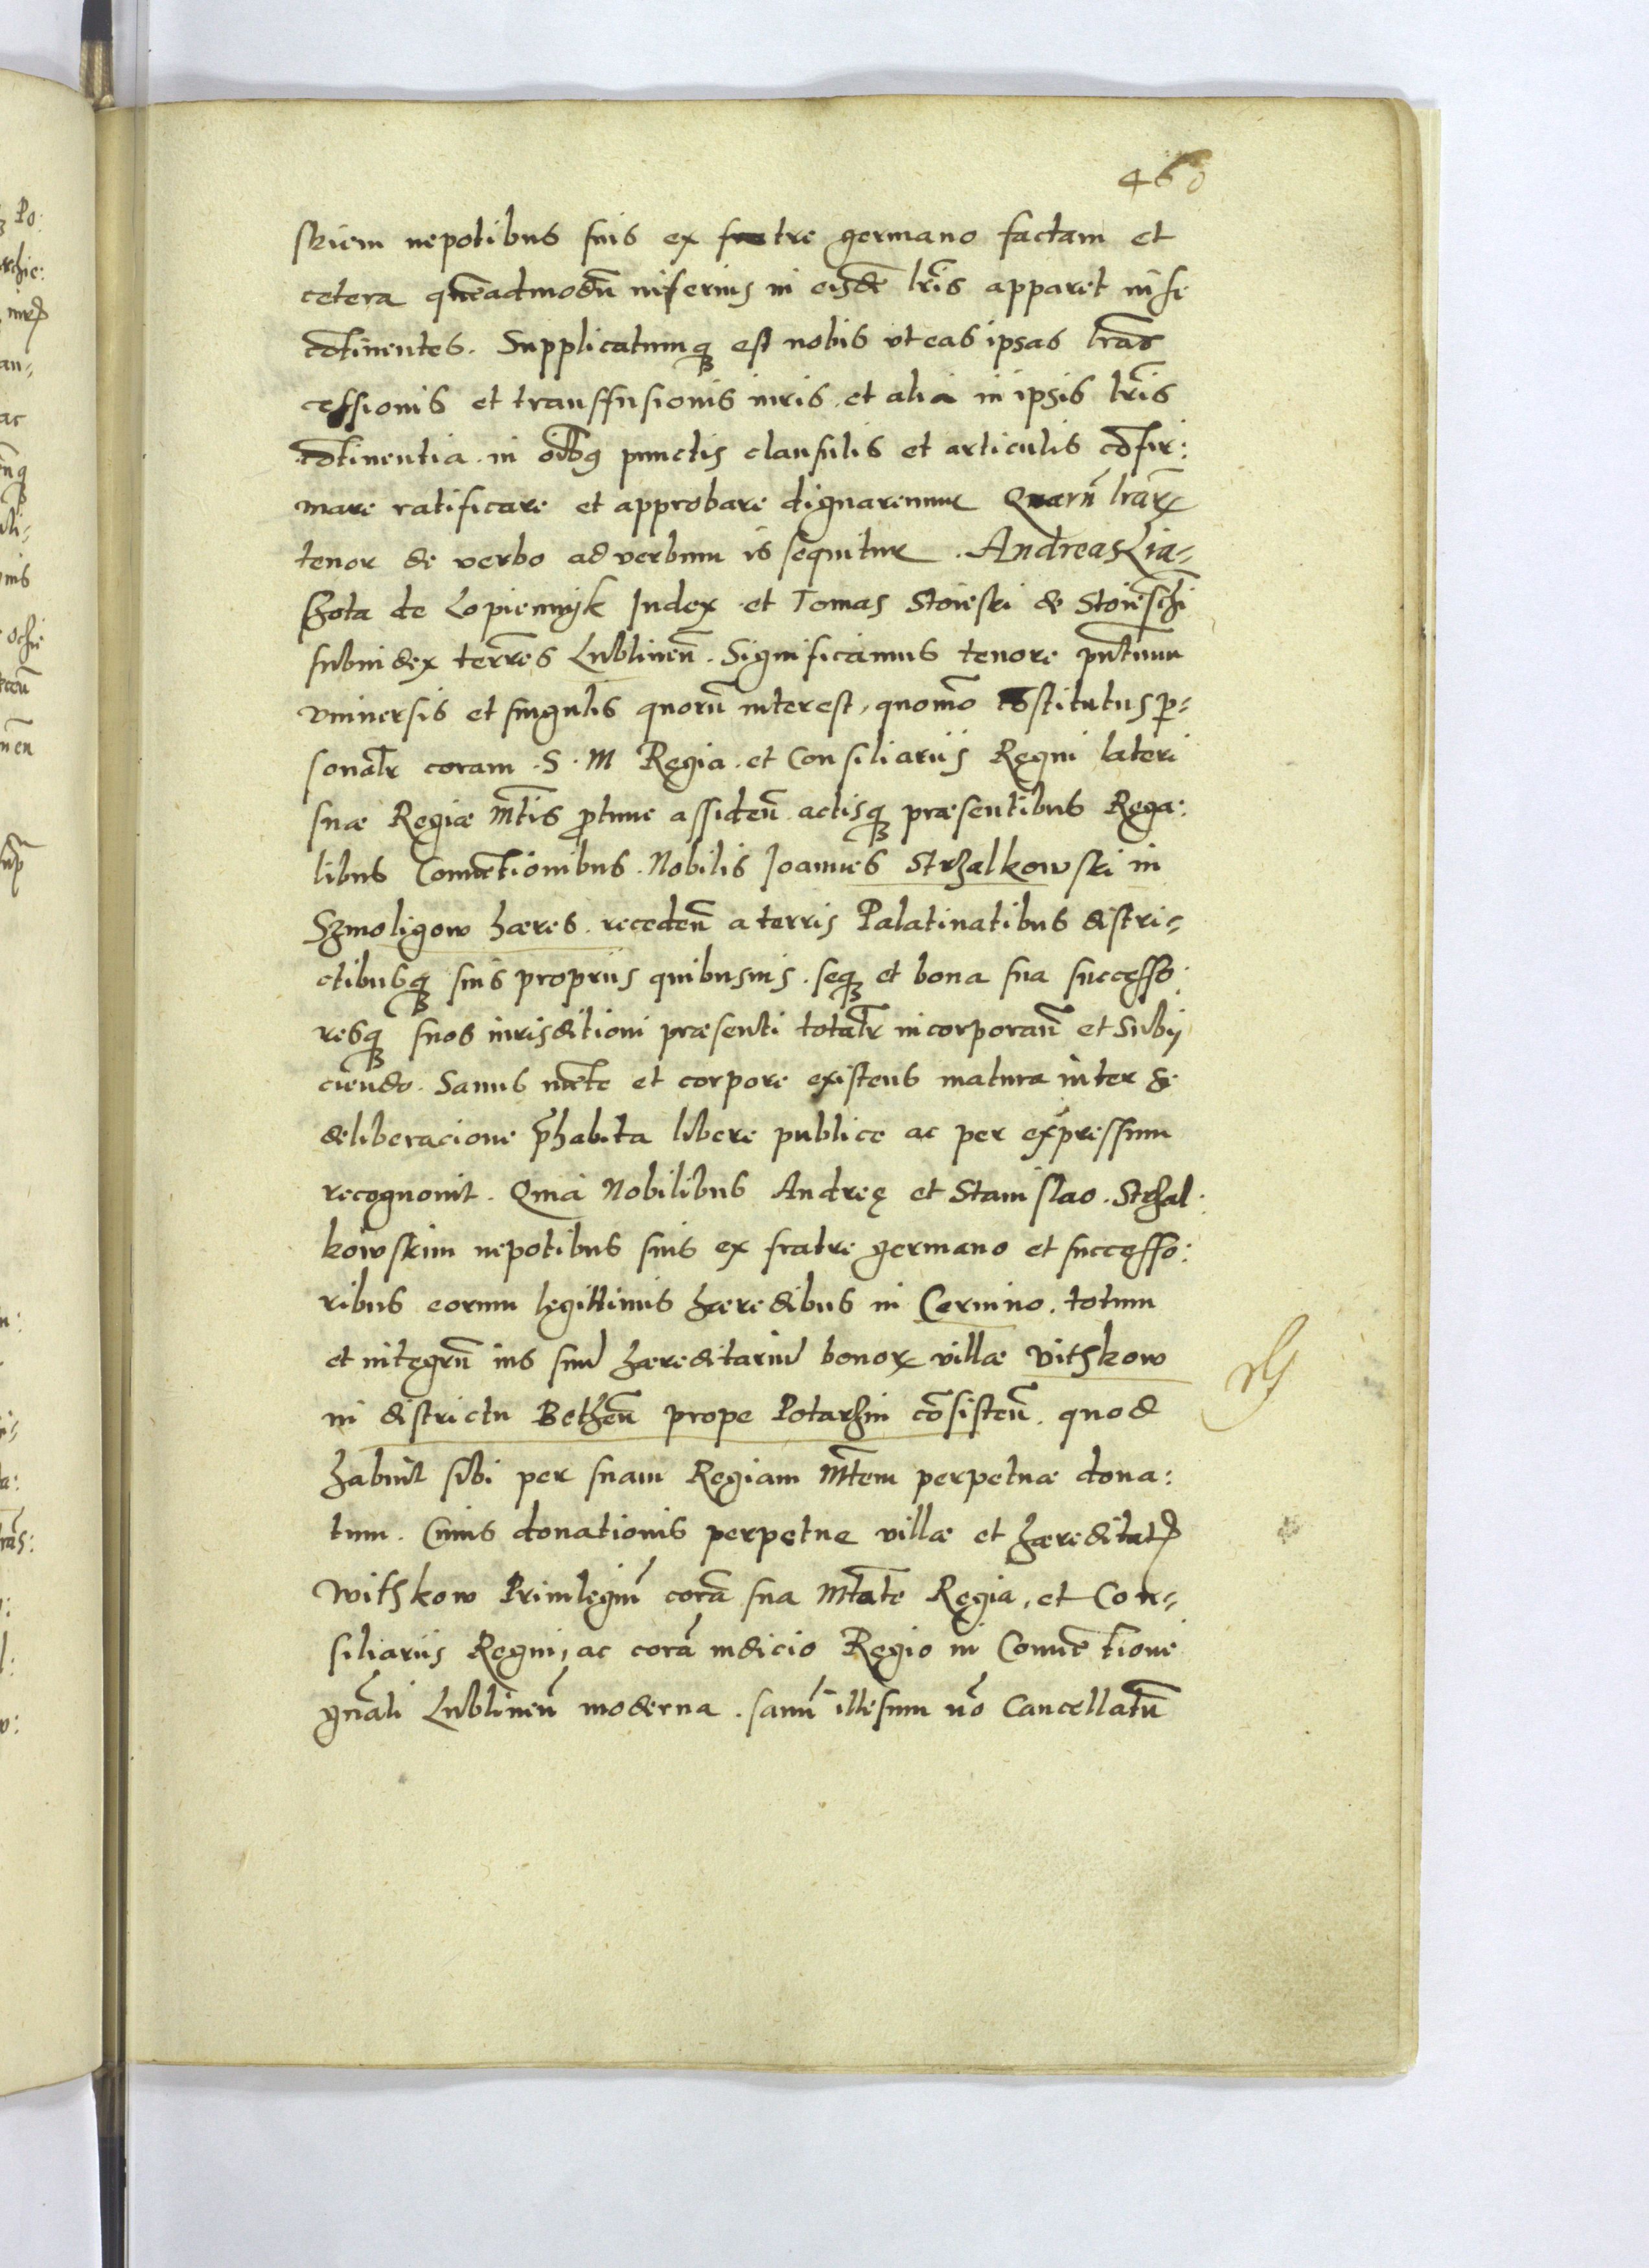 460
skiem nepotibus suis ex fratre germano factam et
cetera quẽadmodũ inferius in eisdẽ lr̃is apparet in se
cõtinentes. Supplicatumq est nobis vt eas ipsas lr̃as
cessionis et transfusionis iuris et alia in ipsis lr̃is
cõtinentia in oĩbq punctis clausulis et articulis cõfir:
mare ratificare et approbare dignaremur Quarũ lr̃arꝝ
tenor de verbo ad verbum is sequitur. Andreas Lia-
szota de Lopiennyk Iudex et Tomas Stoieski de Stoieschi
subiudex terr̃es Lublineñ. Significamus tenore pñtium
vniuersis et singulis quorũ interest, quomõ cõstitutus p-
sonalr̃ coram S. M Regia et Consiliariis Regni lateri
suæ Regiæ Mt̃is ptunc assideñ actisq præsentibus Rega:
libus Conuẽtionibus. Nobilis Joannes Strzalkowski in
Szmoligow hæres. recedeñ a terris Palatinatibus distri-
ctibusq suis propriis quibusuis. seq et bona sua successo
resq suos iurisditioni præsenti totalr̃ incorporañ et Subij
ciendo. Sanus mẽte et corpore existens matura inter se
deliberacione p̃habita libere publice ac per expressum
recognouit. Quia Nobilibus Andreę et Stanislao. Strzal
kowskim nepotibus suis ex fratre germano et successo:
ribus eorum legittimis hæredibus in Cernino. totum
et integrũ ius suũ hæreditariũ bonoꝝ villæ Vithkow
in districtu Belzeñ prope Potarzin cõsisteñ. quod
habuit sibi per suam Regiam Mt̃em perpetuæ dona:
tum. Cuius donationis perpetue villæ et hæreditatꝭ
Withkow Priuilegiũ corã sua Mt̃ate Regia, et Con-
siliariis Regni, ac corã iudicio Regio in Conuẽtione
gñali Lublineñ moderna. sanũ illesum nõ Cancellatũ